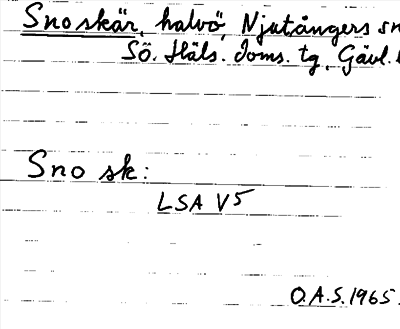 Snoskär, halvö, Njutångers sn
Sö. Häls. doms. tg, Gävl.
Sno sk:
LSA V5
O.A.S. 1965.